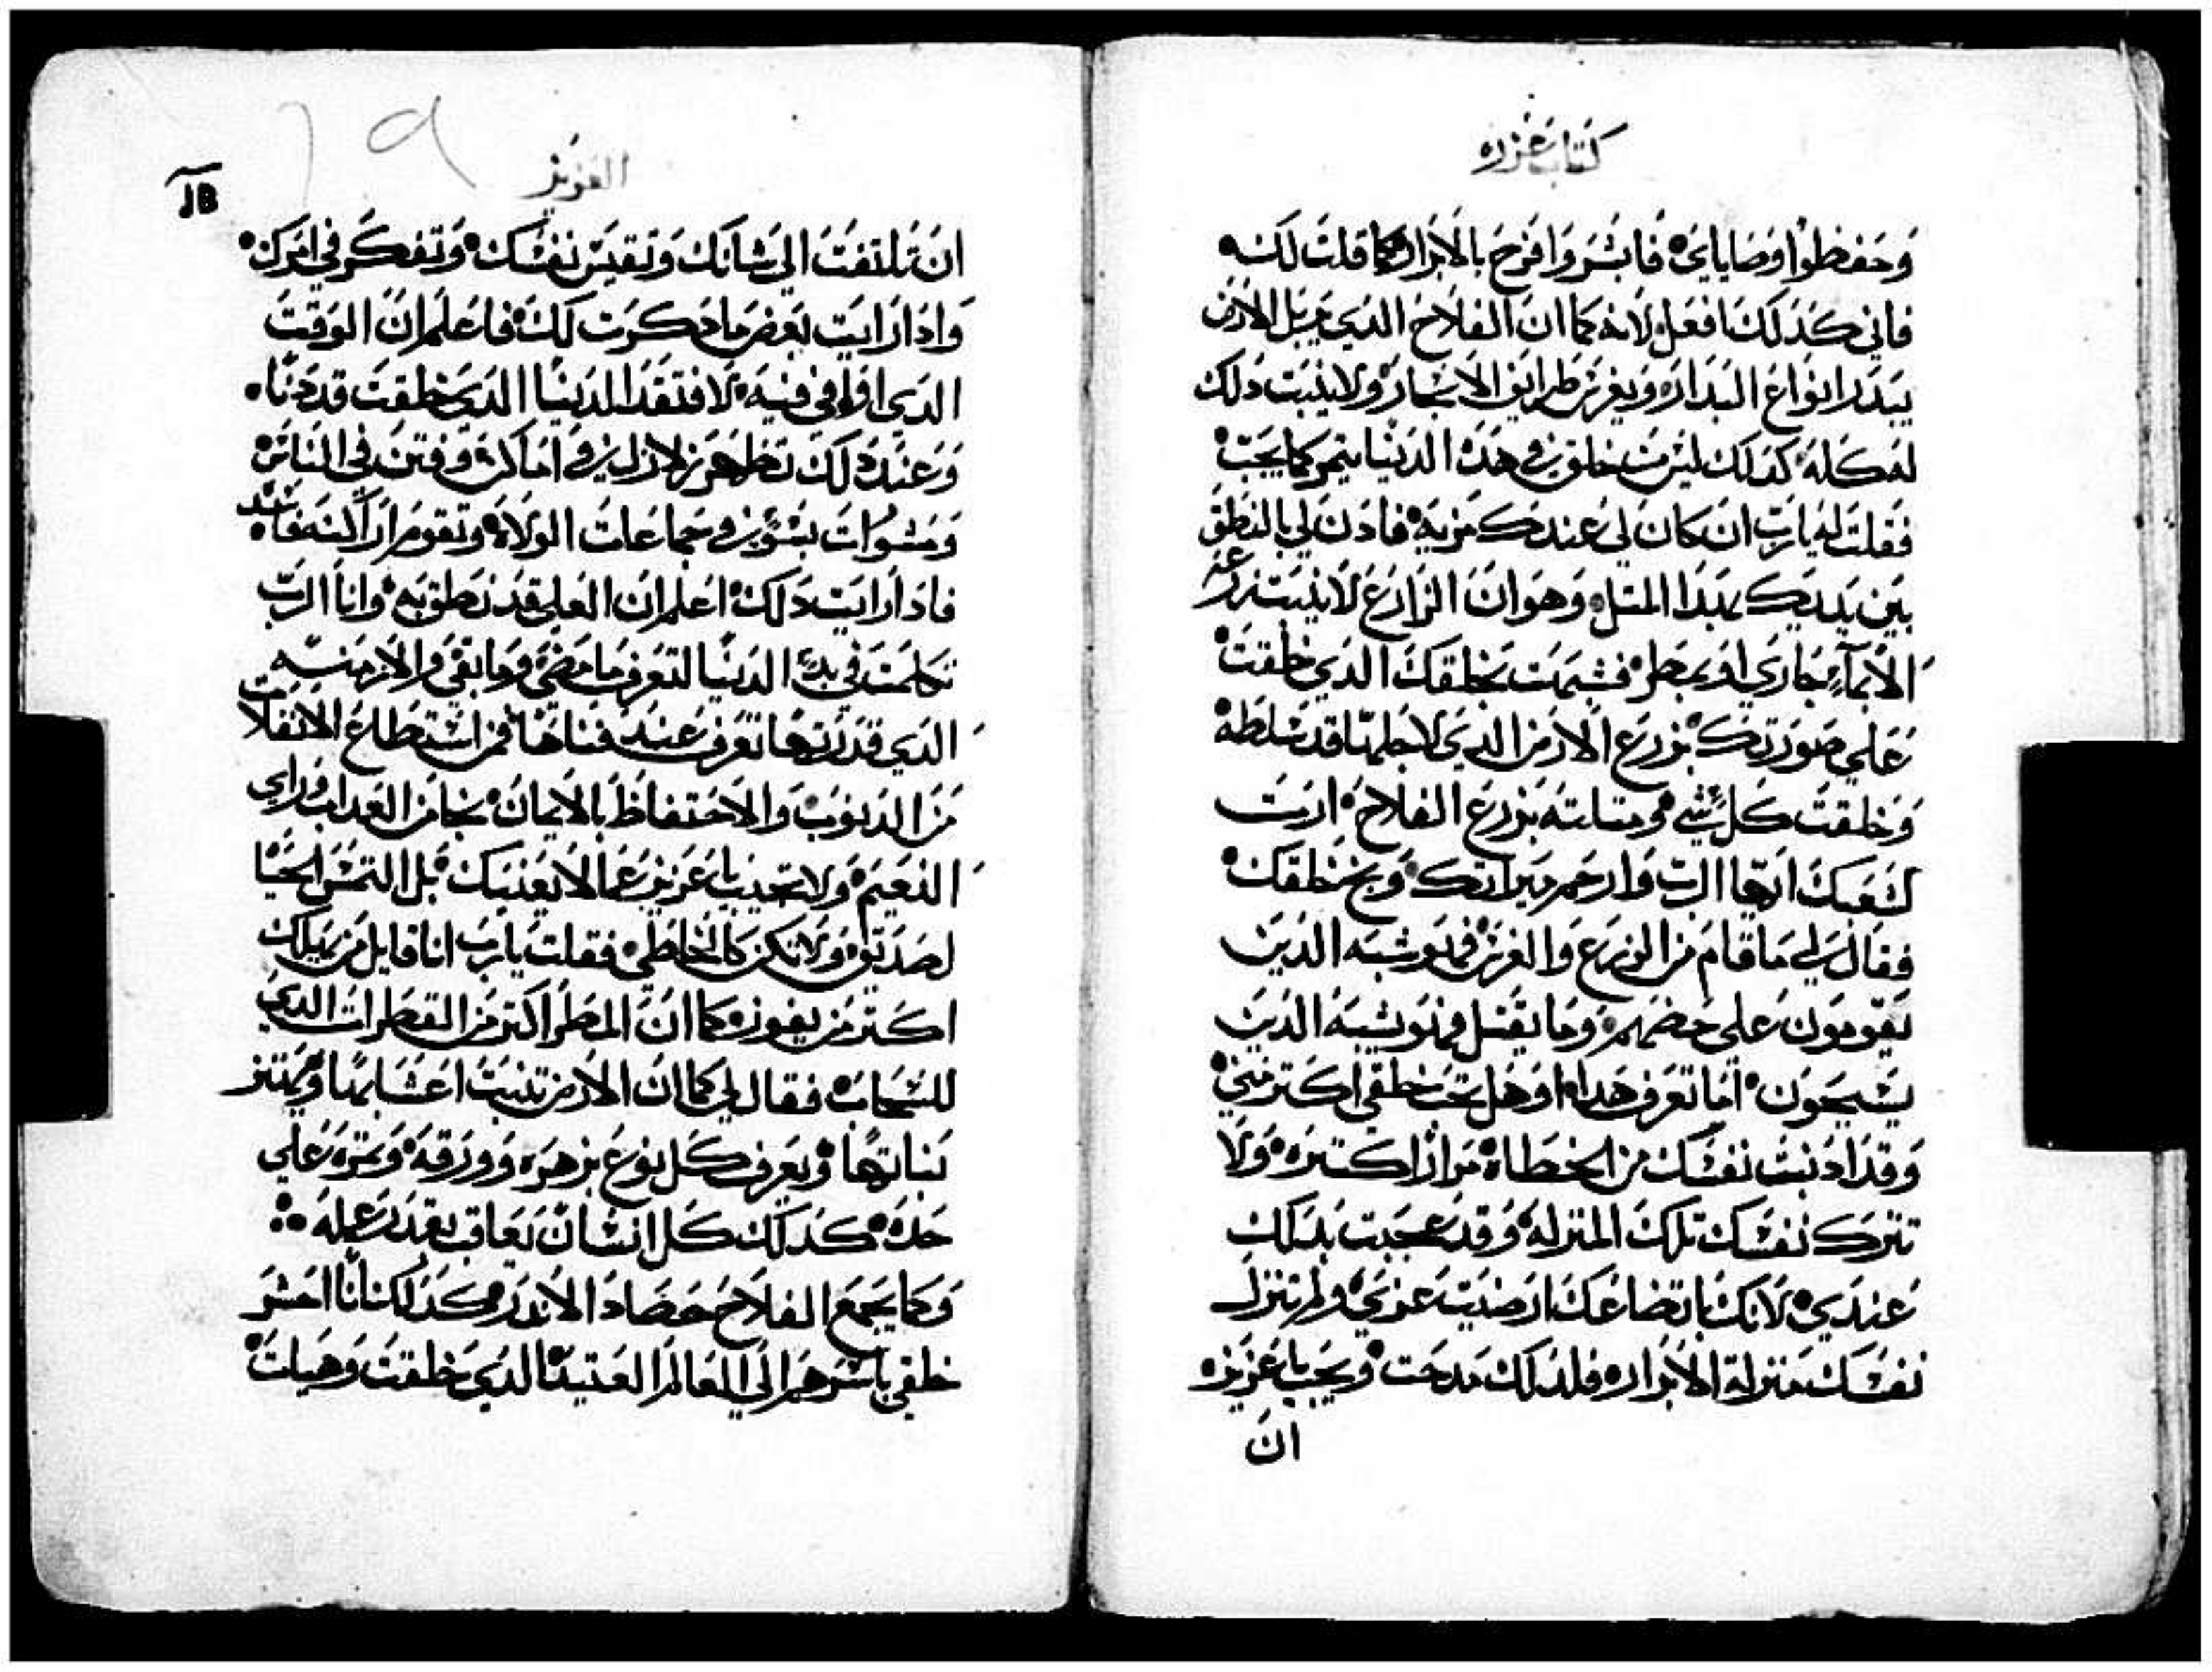 كتاب عزره
وَحَفظوا وَصَاياي فابشر وَافرَح بالابرار كما قلت لك
فاني كذلك افعل لانه كما ان الفلاح الدي يزبل الارض
يبدر انواع البدار ويغرس طرايف الاشجار ولا ينبت دلك
له كله كدلك ليس من خلق في هده الدنيا يتمر كما يجب
فقلت له يارب ان كان لي عندك مزيه فادن لي بالنطق
بين يديك بهدا المتل وهو ان الزارع لا ينبت زرعه
الا بماء جاري او بمطر فشبهت بخلقك الدي خلقت
علي صورتك بزرع الارض الدي لاجلها قد سلطه
وخلقت كل شي ومتلته بزرع الفلاح ارت
لشعبك ايها الرب وارحم ميراتك وبخلقك
فقال لي ما قام من الزرع والغرس فهو شبه الدين
يقومون علي حضهم وما يفسل فهو شبه الدين
يسيحون اما تعرف هدا او هل تحب خلقي اكتر مني
وقد ادنبت نفسك من الخطاه مرارا كتيره ولا
تترك نفسك تلك المنزله وقد عجبت بدلك
عندي لانك باتضاعك ارضيت عزتي ولم تنزل
نفسك منزلة الابرار فلدلك مدحت ويجب ياعزيز
ان
العزيز
ان تلتفت الي شانك وتقيس نفسك وتفكر في امرك
وادا رايت بعض ما دكرت لك فاعلم ان الوقت
الدي اوافي فيه لافتقد الدنيا الدي خلقت قد دنا
وعند دلك تظهر زلازل في اماكن وفتن في الناس
ومشوات بسو في جماعات الولاه وتقوم اراالنه فاسد
فادا رايت دلك اعلم ان العلي قد نطق به وانا الرب
تكلمت في بدء الدنيا لتعرف ما مضي وما بقي والازمنه
الدي قدرتها تعرف عند فناها فمن استطاع الانفلات
من الدنوب والاحتفاظ بالايمان نجا من العداب وراي
النعيم ولا تحيد ياعزيز عما لا يعنيك بل التمس الحيا
لصديق ولا تكن كالخاطي فقلت يارب انا قايل من يهلك
اكتر من يفوز كما ان المطر اكتر من القطرات الدي
للسحاب فقال لي كما ان الارض تنبت اعشابها ويهتز
نباتها ويعرف كل نوع بزهره وورقه وتمره علي
حده كدلك كل انسان يعاقب بقدر عمله
وكما يجمع الفلاح حصاد الاندر كدلك انا احشر
خلقي باسرهم الي العالم العتيد الدي خلقت وهيات